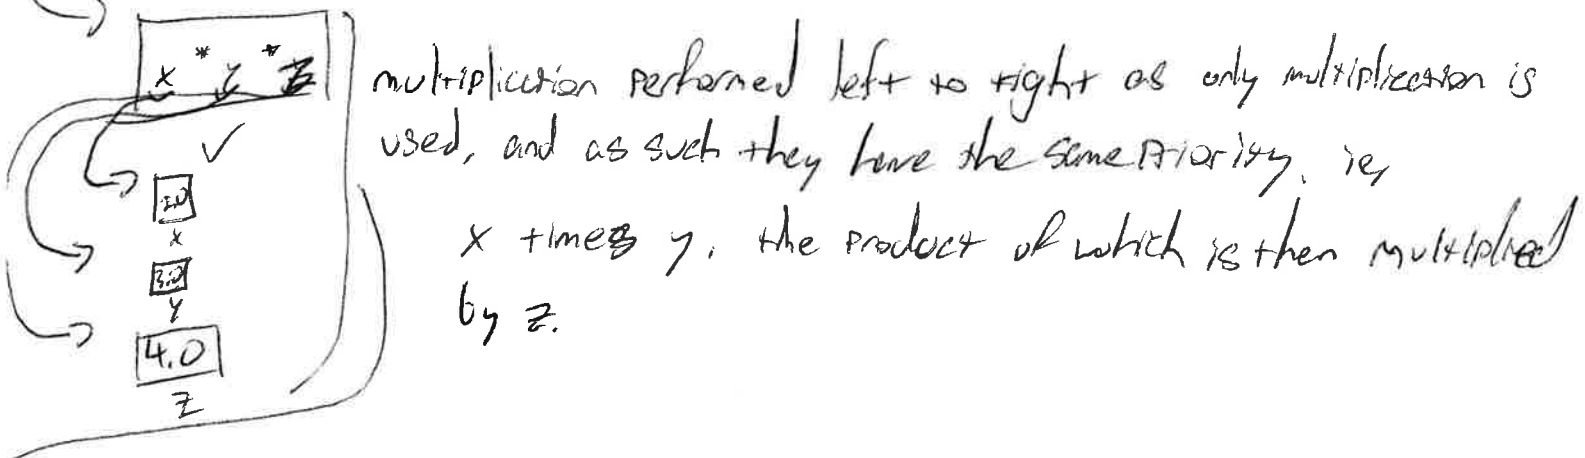 x * y * z
multiplication performed left to right as only multiplication is
used, and as such they have the same priority. ie,
x times y, the product of which is then multiplied
by z.
x
3.0
y
4.0
z